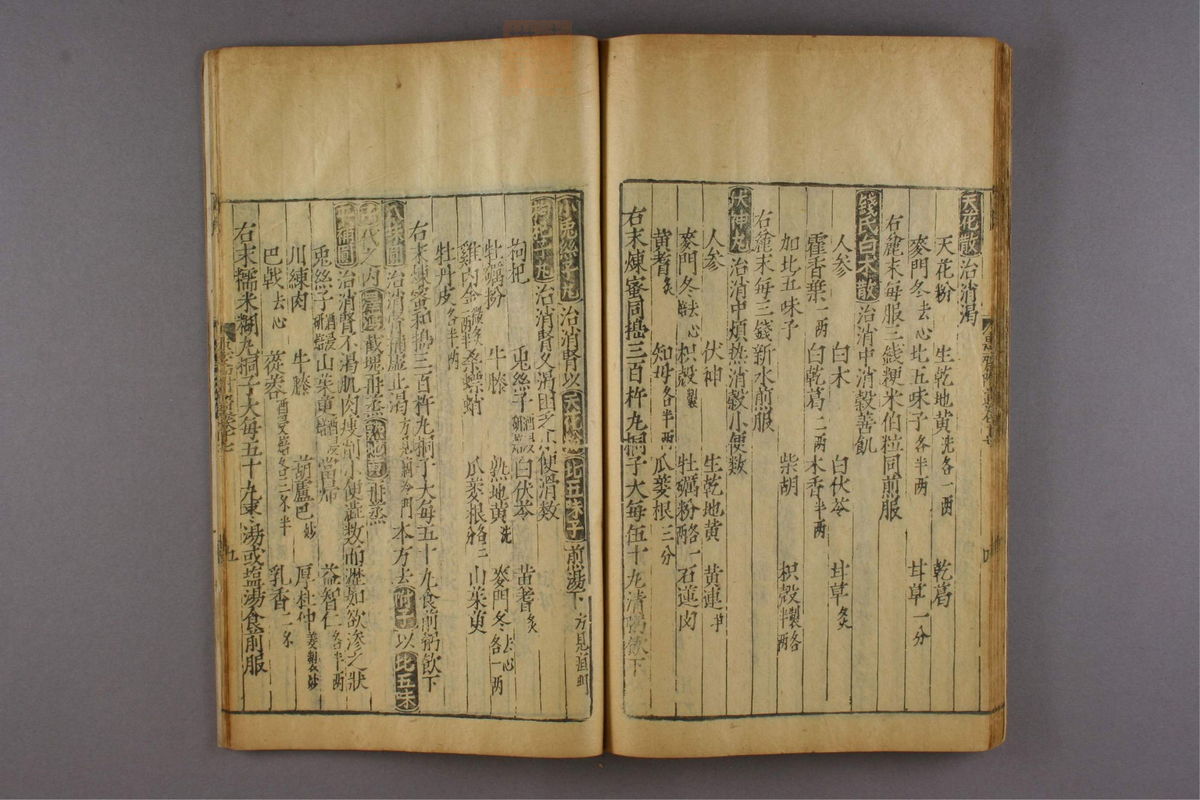 天花散 治消渴
天花粉 生乾地黄洗各一两 乾葛
麥門冬去心 北五味子各半两 甘草一分
右麄末每服三錢粳米伯粒同煎服
錢氏白术散 治消中消穀善飢
人參 白术 白伏苓 甘草炙
藿香葉一两 白乾葛二两 木香半两
加北五味子 柴胡 枳殻製各半两
右麄末每三錢新水煎服
伏神丸 治消中煩热消穀小便数
人參 伏神 生乾地黄 黄連
麥門冬去心 枳殻製 牡蠣粉各一两 石蓮肉
黄耆炙 知母各半两 瓜蔞根三分
右末煉蜜同搗三百杵丸桐子大每伍十丸清粥飲下
小兎絲子丸 治消腎以天花粉北五味子煎湯下
枸杞子丸 治消腎久渴困乏小便滑数
枸杞 兎絲子 白伏苓 黄耆炙
牡蠣粉 牛膝 熟地黄洗 麥門冬去心各一两
雞内金 桑螵蛸 瓜蔞根 山茱萸
牡丹皮各半两
右末煉蜜和搗三百杵丸桐子大每五十丸食前粥飲下
治消腎補虛止渴 本方去附子以北五味
子代之
治消腎不渴肌肉瘦削小便澁数而瀝如欲滲之狀
兎絲子 山茱萸 當帰 益智仁各半两
川練肉 牛膝 葫蘆巴炒 厚杜仲
巴戟去心 蓯蓉 乳香二分
右末糯米糊丸桐子大每五十丸棗湯或塩湯食前服
九